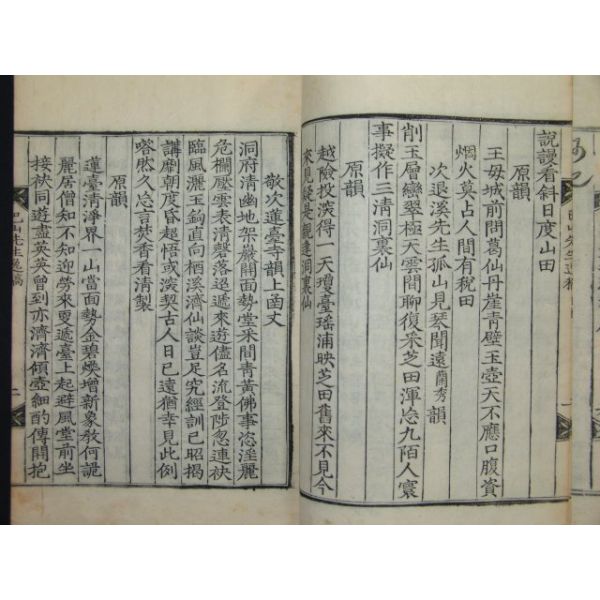 說謾看斜日度山田
原韻
王母城前問葛仙丹崖青壁玉壺天不應口腹資
烟火莫占人間有稅田
次退溪先生孤山見琴聞遠蘭秀韻
削玉層巒翠極天雲間聊復采芝田渾忘九陌人寰
事擬作三清洞裏仙
原韻
越險投深得一天臺瑤浦映芝田舊來不見今
來見疑是親逢洞裏仙
敬次蓮臺寺韻上函丈
洞府清幽地架巖開面勢堂采間青黃佛事恣淫麗
危欄壓雲表清磬落遞來遊儘名流登陟忽連袂
臨風灑玉鉤直向栖溪濟仙談豈足究經訓已昭揭
講劘朝度昏起悟或深契古人日已遠猶幸見此例
嗒然久忘言焚香看清製
原韻
蓮臺清淨界一山當面勢金碧煥增新象教何詭
麗居僧知不知迎勞來更遞臺上起避風堂前坐
接袂同遊盡英英曾到亦濟濟傾壺細酌傳開抱
巴山先生逸稿
二